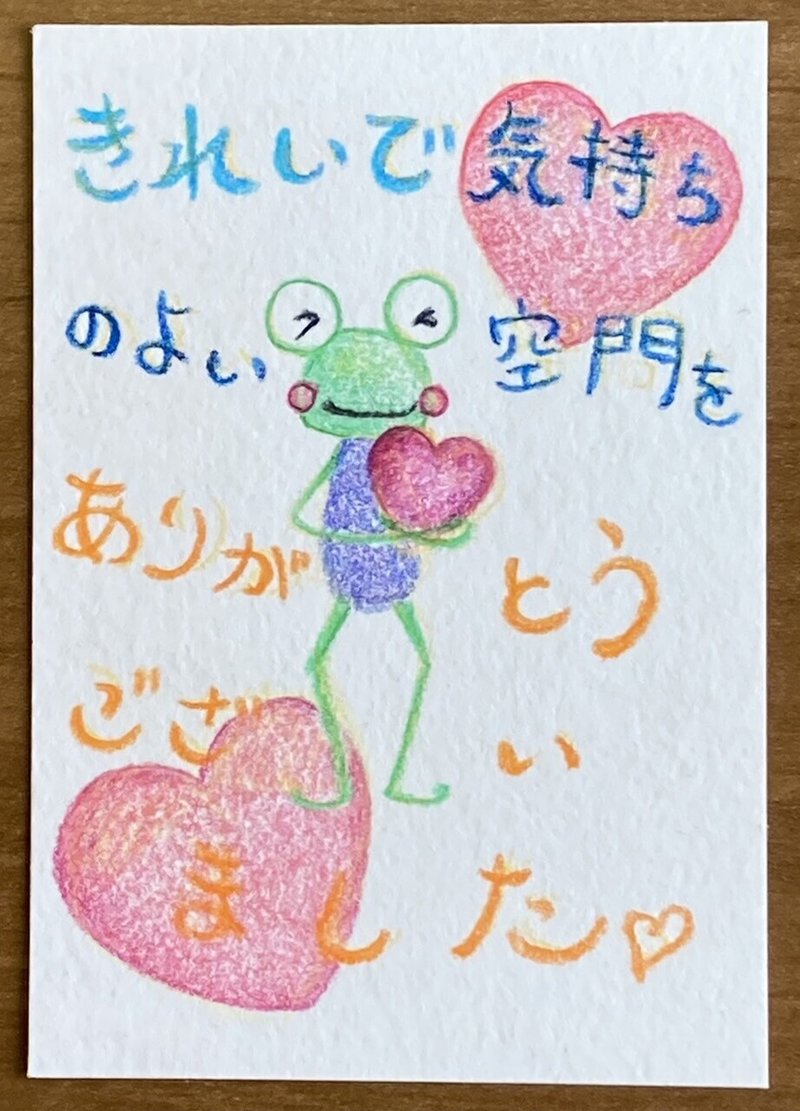 きれいで気持ち
のよい空門を
ありがとう
ござい
ました♡